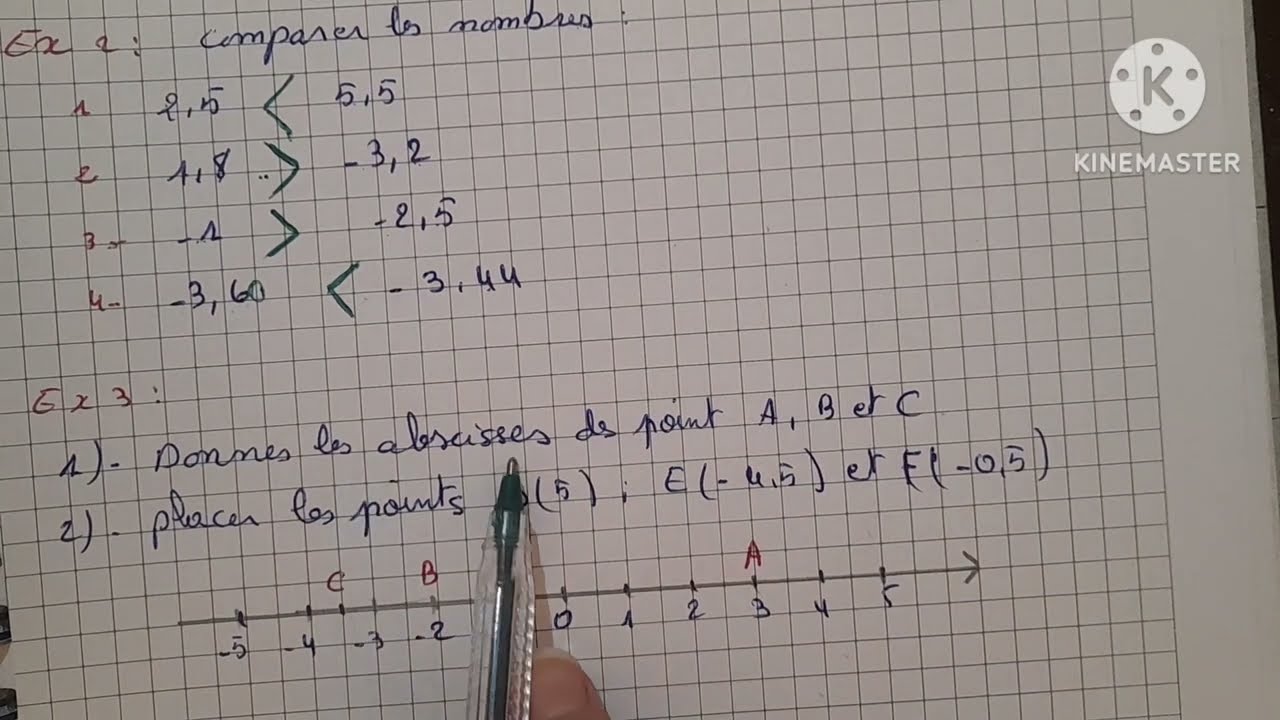 Ex 2: Comparer les nombres :
1 2,5 < 5,5
2 1,8 .. > -3,2
3- -1 > -2,5
4- -3,60 < -3,44
Ex 3 :
1)- Donnes les abscisses de point A, B et C
2)- placer les points (5) ; E(-4,5) et F(-0,5)
C B A
-5 -4 -3 -2 0 1 2 3 4 5
K
KINEMASTER